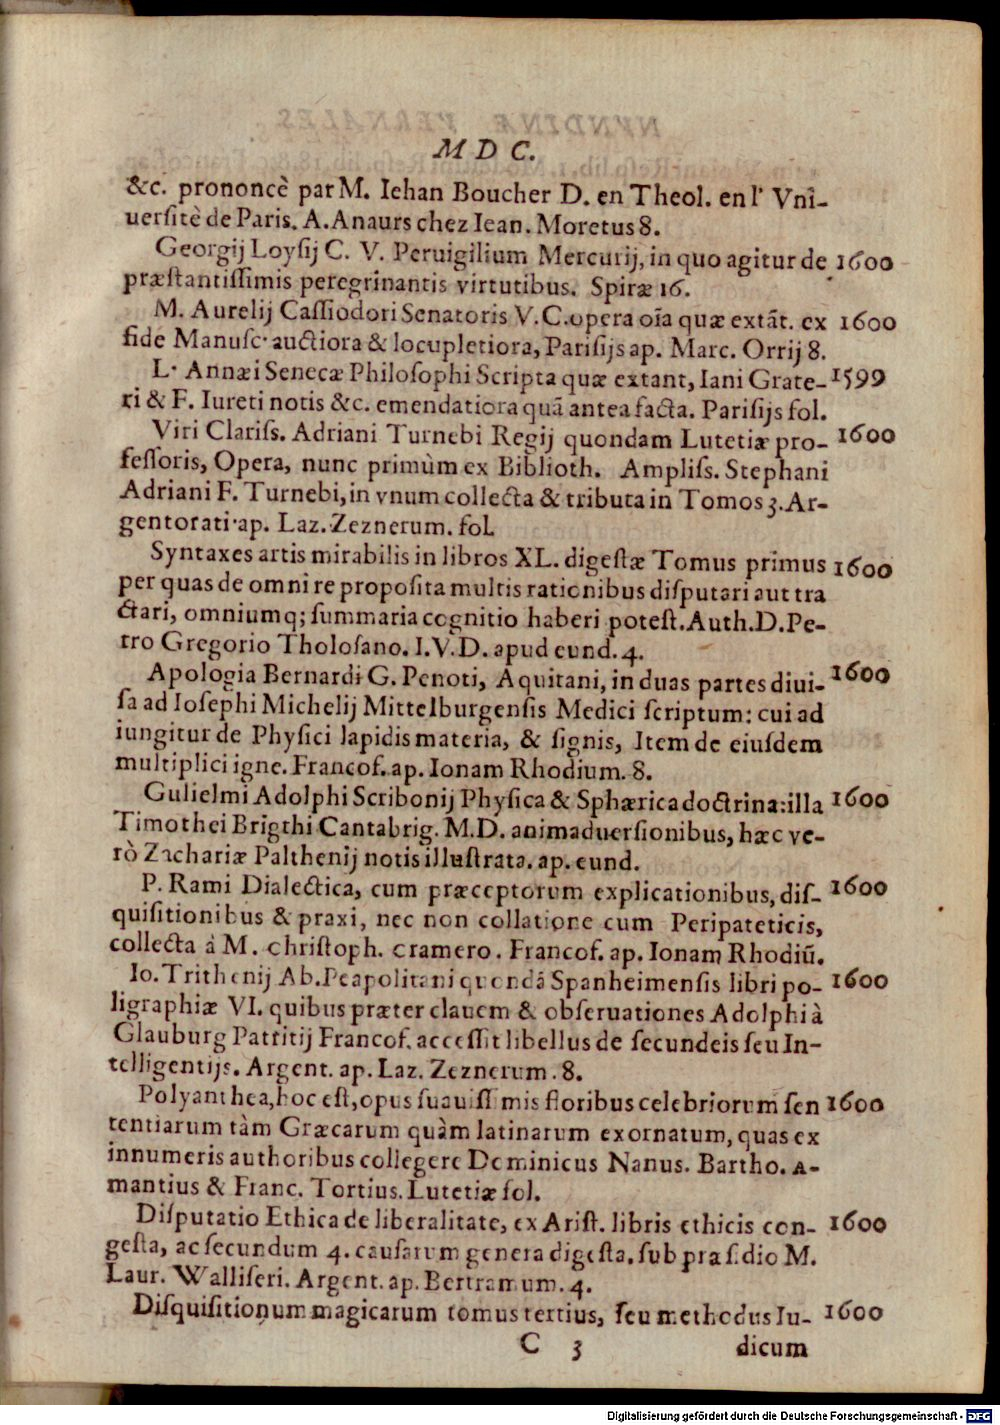 M D C.
&c. prononcè par M. Iehan Boucher D. en Theol. en l' Vni-
uersitè de Paris. A. Anaurs chez Iean. Moretus 8.
Georgij Loysij C. V. Peruigilium Mercurij, in quo agitur de 1600
præstantissimis peregrinantis virtutibus. Spiræ 16.
M. Aurelij Cassiodori Senatoris V. C. opera oĩa quæ extãt. ex 1600
fide Manusc· auctiora & locupletiora, Parisijs ap. Marc. Orrij 8.
L· Annæi Senecæ Philosophi Scripta quæ extant, Iani Grate- 1599
ri & F. Iureti notis &c. emendatiora quã antea facta. Parisijs fol.
Viri Clariss. Adriani Turnebi Regij quondam Lutetiæ pro- 1600
fessoris, Opera, nunc primùm ex Biblioth. Ampliss. Stephani
Adriani F. Turnebi, in vnum collecta & tributa in Tomos 3. Ar-
gentorati·ap. Laz. Zeznerum. fol.
Syntaxes artis mirabilis in libros XL. digestæ Tomus primus 1600
per quas de omni re proposita multis rationibus disputari aut tra
ctari, omniumq; summaria cognitio haberi potest. Auth. D. Pe-
tro Gregorio Tholosano. I. V. D. apud eund. 4.
Apologia Bernardi G. Penoti, Aquitani, in duas partes diui- 1600
sa ad Iosephi Michelij Mittelburgensis Medici scriptum: cui ad
iungitur de Physici lapidis materia, & signis, Item de eiusdem
multiplici igne. Francof. ap. Ionam Rhodium. 8.
Gulielmi Adolphi Scribonij Physica & Sphærica doctrina: illa 1600
Timothei Brigthi Cantabrig. M. D. animaduersionibus, hæc ve-
rò Zachariæ Palthenij notis illustrata. ap. eund.
P. Rami Dialectica, cum præceptorum explicationibus, dis- 1600
quisitionibus & praxi, nec non collatione cum Peripateticis,
collecta à M. Christoph. Cramero. Francof. ap. Ionam Rhodiũ.
Io. Trithenij Ab. Peapolitani quondã Spanheimensis libri po- 1600
ligraphiæ VI. quibus præter clauem & obseruationes Adolphi à
Glauburg Patritij Francof. accessit libellus de secundeis seu In-
telligentijs. Argent. ap. Laz. Zeznerum. 8.
Polyanthea, hoc est, opus suauissimis floribus celebriorum sen 1600
tentiarum tàm Græcarum quàm latinarum exornatum, quas ex
innumeris authoribus collegere Dominicus Nanus. Bartho. A-
mantius & Franc. Tortius. Lutetiæ fol.
Disputatio Ethica de liberalitate, ex Arist. libris ethicis con- 1600
gesta, ac secundum 4. causarum genera digesta. sub præsidio M.
Laur. Walliseri. Argent. ap. Bertramum. 4.
Disquisitionum magicarum tomus tertius, seu methodus Iu- 1600
C 3 dicum
Digitalisierung gefördert durch die Deutsche Forschungsgemeinschaft - DFG